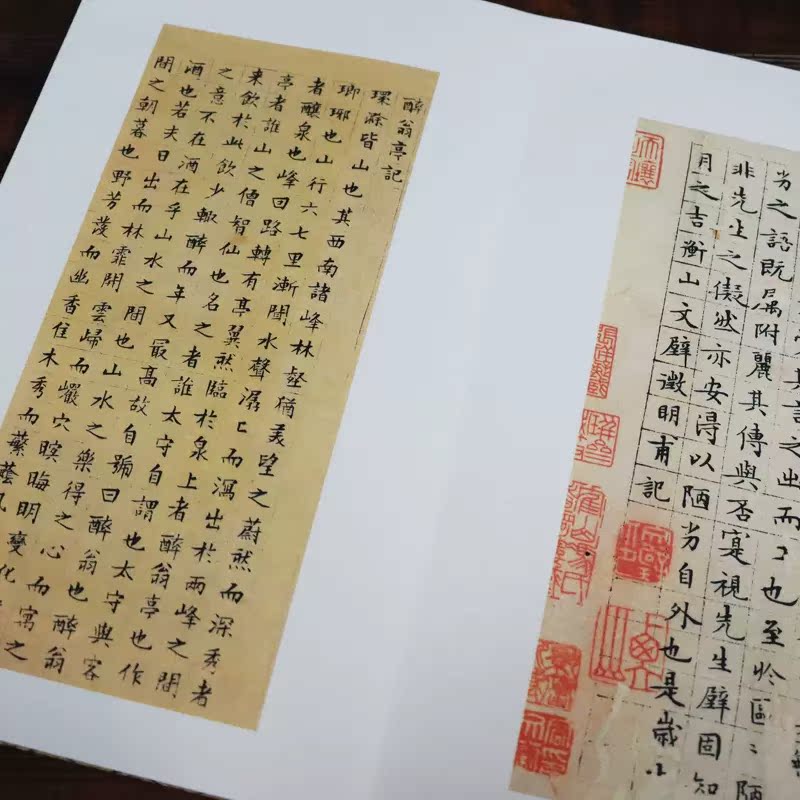 其言之出而〻也至於區〻陋
劣之語既屬附麗其傳與否寔視先生壁固知
非先生之儗然亦安得以陋劣自外也是歲八
月之吉衡山文壁徵明甫記
醉翁亭記
環滁皆山也其西南諸峰林壑猶美望之蔚然而深秀者
瑯琊也山行六七里漸聞水聲潺〻而瀉出於兩峰之間
者釀泉也峰回路轉有亭翼然臨於泉上者醉翁亭也作
亭者誰山之僧智仙也名之者誰太守自謂也太守與客
來飲於此飲少輒醉而年又最高故自號曰醉翁也醉翁
之意不在酒在乎山水之間也山水之樂得之心而寓之
酒也若夫日出而林霏開雲歸而巖穴暝晦明變化
間之朝暮也野芳發而幽香佳木秀而蘩蔭風